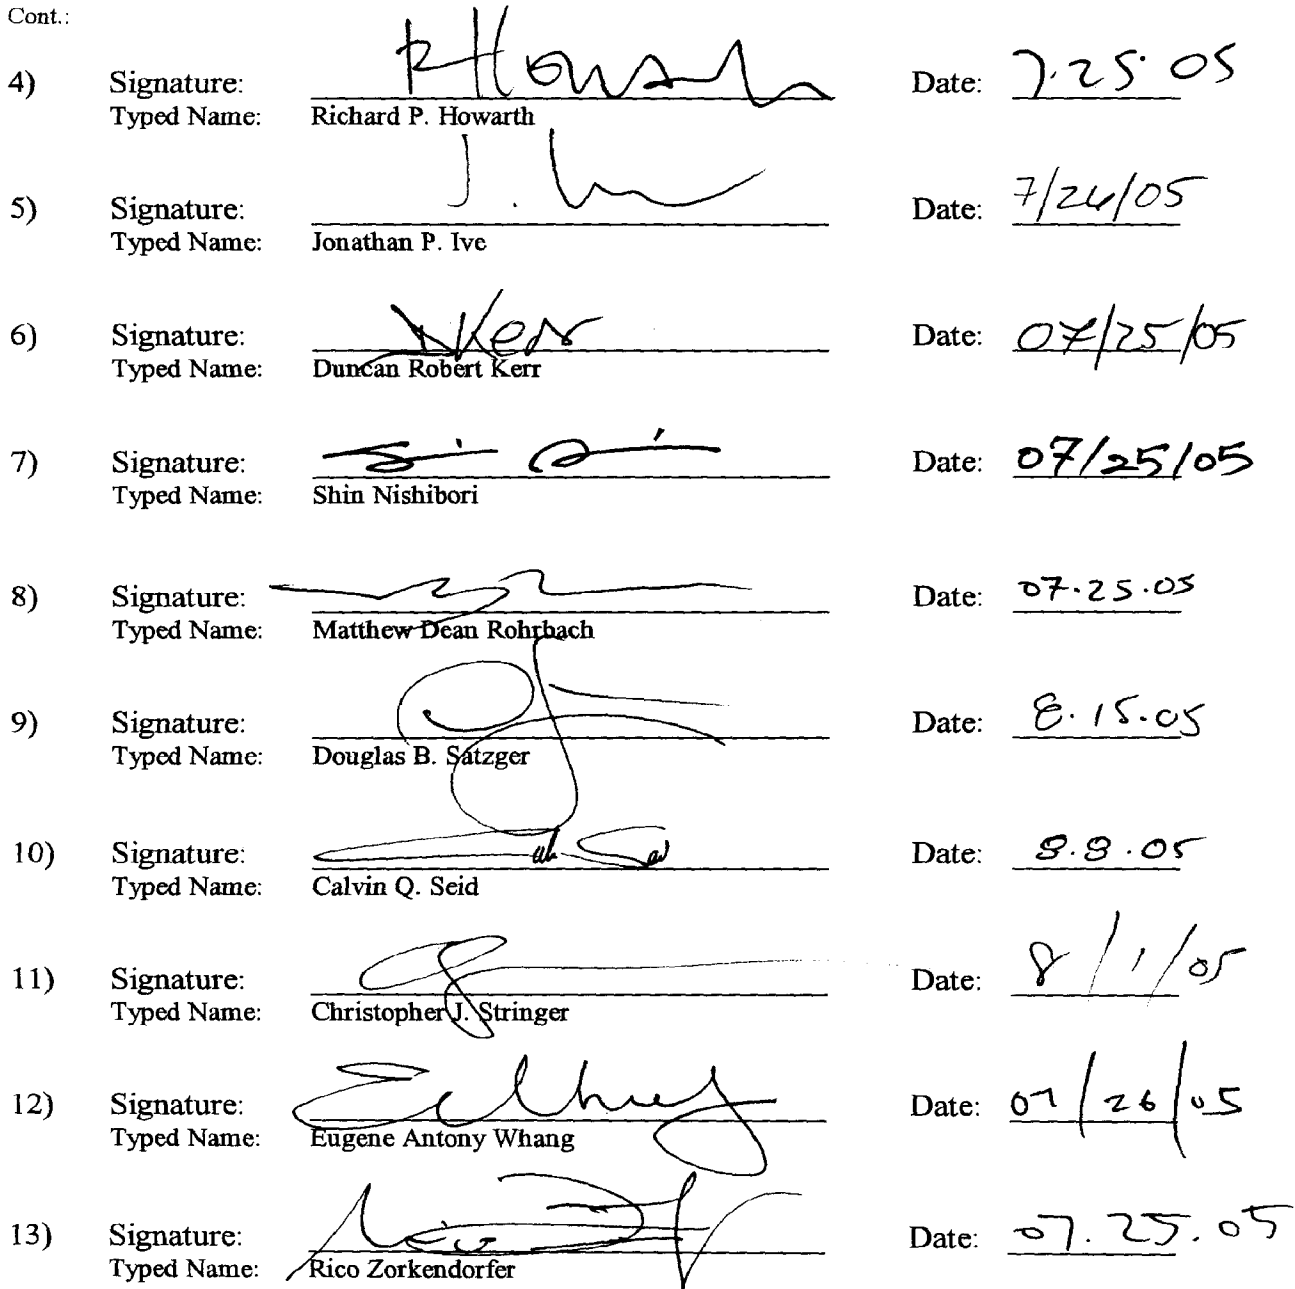 Cont.:
4) Signature: R Howarth Date: 7.25.05
Typed Name: Richard P. Howarth
5) Signature: Date: 7/26/05
Typed Name: Jonathan P. Ive
6) Signature: DKerr Date: 07/25/05
Typed Name: Duncan Robert Kerr
7) Signature: Date: 07/25/05
Typed Name: Shin Nishibori
8) Signature: Date: 07.25.05
Typed Name: Matthew Dean Rohrbach
9) Signature: Date: 8.15.05
Typed Name: Douglas B. Satzger
10) Signature: Date: 8.8.05
Typed Name: Calvin Q. Seid
11) Signature: Date: 8/1/05
Typed Name: Christopher J. Stringer
12) Signature: Date: 07/26/05
Typed Name: Eugene Antony Whang
13) Signature: Date: 07.25.05
Typed Name: Rico Zorkendorfer